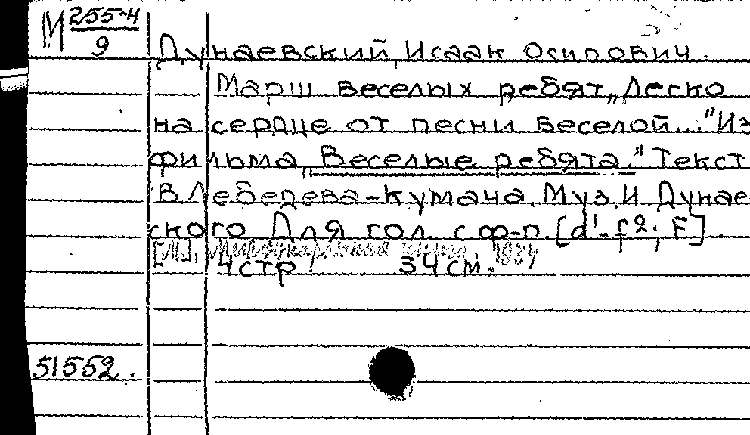 М 255-4
9
Дунаевский, Исаак Осипович.
Марш веселых ребят „Легко
на сердце от песни веселой..." Из
фильма „Веселые ребята." Текст
В Лебедева-Кумача. Муз. И Дунаев
ского Для гол. с ф-п. [d¹-f²; F].
4 стр 34 см.
51552.